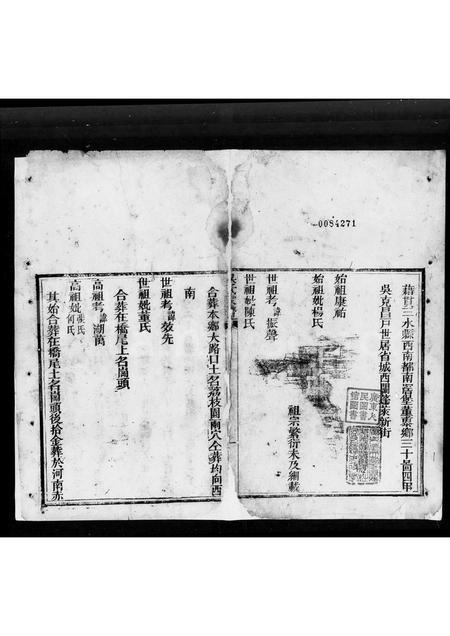 0084271
籍貫三水縣西南都南岸堡董𡍼鄉三十啚四甲
吳克昌戶世居省城西關蓬萊新街
祖宗繁衍未及細載
始祖康祐
始祖妣楊氏
世祖考諱振聲
世祖妣陳氏
合葬本鄉大路口土名荔枝園兩穴仝葬均向西
南
世祖考諱效先
世祖妣董氏
合葬在橋尾土名崗頭
高祖考諱湖萬
高祖妣張氏何氏
其始合葬在橋尾土名崗頭後拾金葬於河南赤